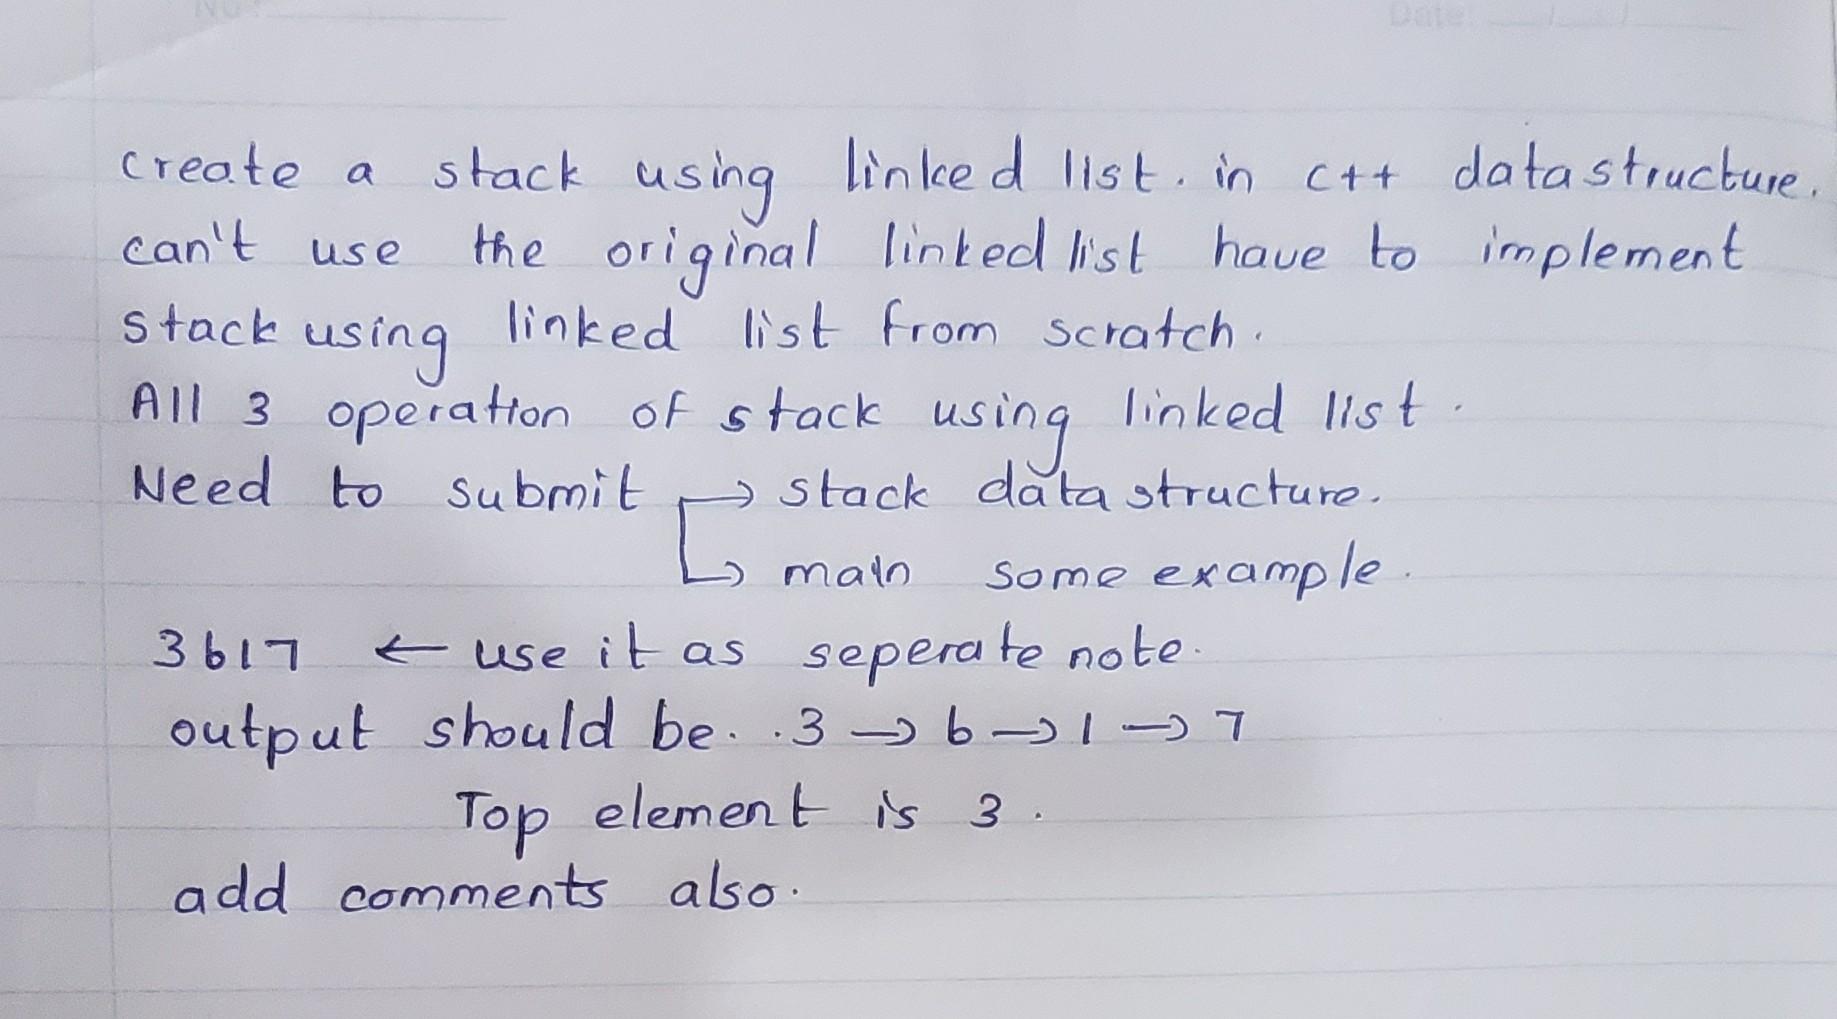 No:
Date:
create a stack using linked list. in c++ datastructure.
can't use the original linked list have to implement
stack using linked list from scratch.
All 3 operation of stack using linked list.
Need to submit → stack data structure.
→ main some example.
3617 ← use it as seperate note.
output should be. .3 → 6 → 1 → 7
Top element is 3.
add comments also.